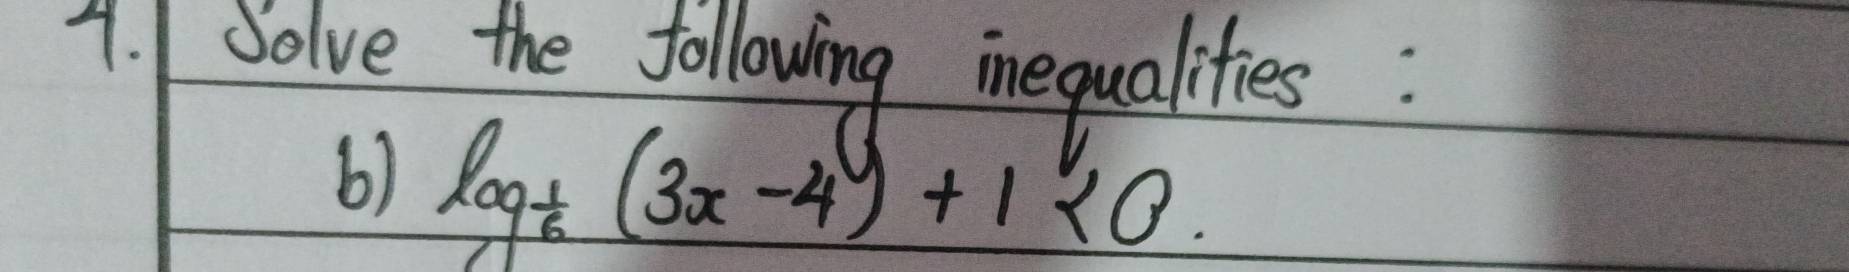 4. Solve the following inequalities :
b) log_{1/6} (3x - 4) + 1 < 0.